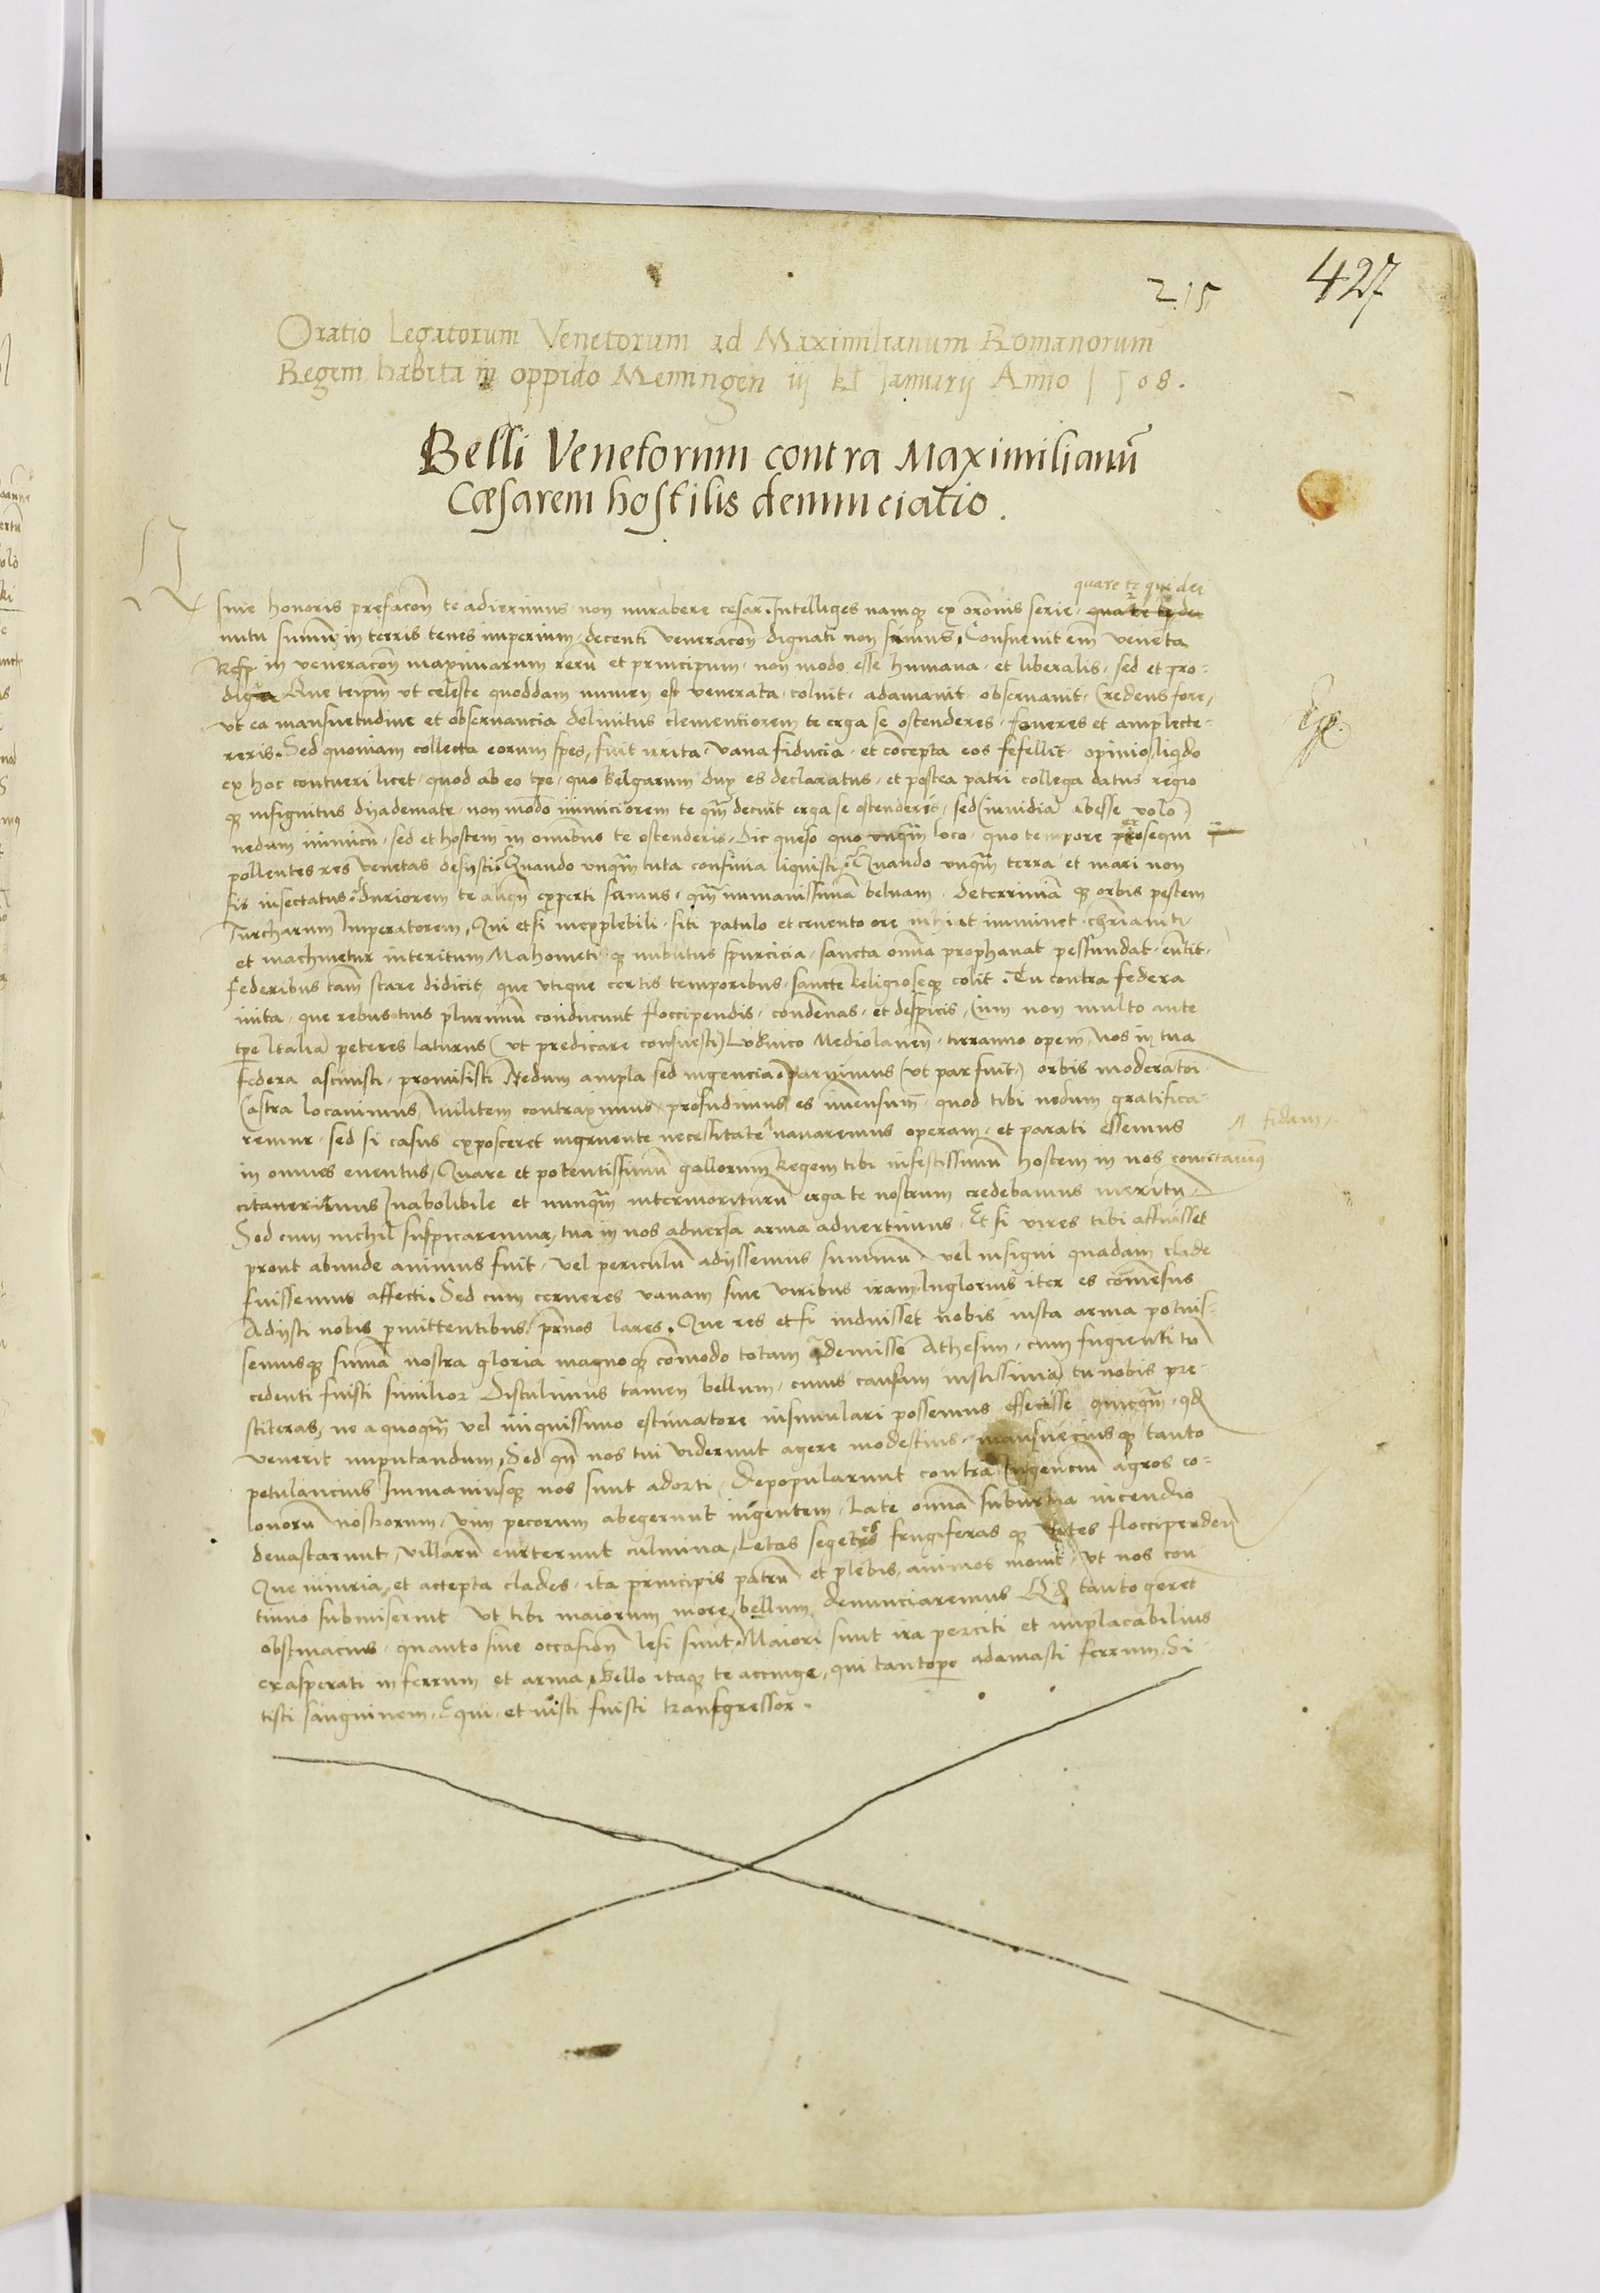 427
215
Oratio Legatorum Venetorum ad Maximilianum Romanorum
Regem habita in oppido Memingen iij kl Januarij Anno 1508.
Belli Venetorum contra Maximilianū
Cæsarem hostilis denunciatio.
quare te qui dei
sine honoris prefacon̄ te adierimus non mirabere cesar. Intelliges namqꝫ ex orōnis serie.
nutu summū in terris tenes imperium, decenti veneracōn dignati non sumus. Consuevit em̄ veneta
Resp. in veneracōn maximarum rerū et principum, non modo esse humana, et liberalis, sed et pro-
diga Que teipm̄ vt celeste quoddam numen est venerata, coluit, adamavit observavit, Credens fore,
vt ea mansuetudine et observancia delinitus clementiorem te erga se ostenderes, foveres et amplecte-
reris. Sed quoniam collecta eorum spes, fuit irrita, vana fiducia, et cōcepta eos fefellit opinio, liqdo
ex hoc contueri licet, quod ab eo tpe, quo belgarum dux es declaratus, et postea patri collega datus regio
qꝫ insignitus dyademate, non modo inimiciorem te qm̄ decuit erga se ostenderis, sed (invidia abesse volo)
nedum inimicū, sed et hostem in omnibus te ostenderis, Dic queso quo loco, quo tempore
pollentes res venetas desijsti? Quando vnqm̄ tuta confinia liquisti? Quando vnqm̄ terra et mari non
sis insectatus? duriorem te experti sumus, qm̄ inmanissimā beluam, deterrimā qꝫ orbis pestem
Turcharum Imperatorem, Qui etsi inexplebili siti patulo et cruento ore imminet
et machinetur interitum Mahometi qꝫ imbutus spurcicia, sancta omnia prophanat pessundat,
Federibus tam̄ stare didicit, que vtique certis temporibus, sancte Religioseqꝫ colit. Tu contra federa
inita, que rebus tuis plurimū conducunt floccipendis, condenas, et despicis, Cum non multo ante
tpe Italiā peteres laturus (vt predicare consuesti) Lodovico Mediolanen̄ tirranno opem, Nos in tua
federa ascivisti, promisisti Nedum ampla sed ingencia, Paruimus (vt par fuit) orbis moderatori
Castra locavimus, Militem contraximus, profudimus es im̄ensum, quod tibi nedum gratifica-
remur, sed si casus exposceret ingruente necessitate navaremus operam, et parati essemus
fidam
in omnes eventus, Quare et potentissimū gallorum Regem tibi infestissimū hostem in nos concitavimus
citaverimus Inabolibile et nunqm̄ intermoriturū erga te nostrum credebamus meritū.
Sed cum nichil suspicaremur, tua in nos adversa arma advertimus. Et si vires tibi affuisset
prout abunde animus fuit, vel periculū adijssemus summū vel insigni quadam clade
fuissemus affecti. Sed cum cerneres vanam sine viribus iram, Inglorius iter es emensus
Adijsti nobis pmittentibus, pr̄nos lares. Que res etsi induisset nobis iusta arma potuis-
semusqꝫ summā nostra gloria magnoqꝫ cōmodo totam ademisse Athesim, cum fugienti tū
cedenti fuisti similior Distulimus tamen bellum, cuius causam iustissimā tu nobis pre-
stiteras, ne a quoqm̄ vel iniquissimo estimatore insimulari possemus effecisse quicqm̄, qd
venerit imputandum, Sed qn̄ nos tui viderunt agere modestius, mansueciusqꝫ tanto
petulancius Immaniusqꝫ nos sunt adorti, Depopularunt contra Ius gencium agros co-
lonorū nostrorum, vim pecorum abegerunt ingentem, Late omnia suburbia incendio
devastarunt, villarū everterunt culmina, Letas segetes frugiferas qꝫ vites
Que iniuria, et accepta clades, ita principis patrū et plebis, animos movit, vt nos con-
tinuo submiserint Vt tibi maiorum more, bellum denunciaremus Qd tanto geret
obstinacius, quanto sine occasion̄ lesi sunt. Maiori sunt ira perciti et implacabilius
exasperati in ferrum et arma, Bello itaqꝫ te accinge, qui tantope adamasti ferrum, Si-
tisti sanguinem, Equi, et iusti fuisti transgressor.